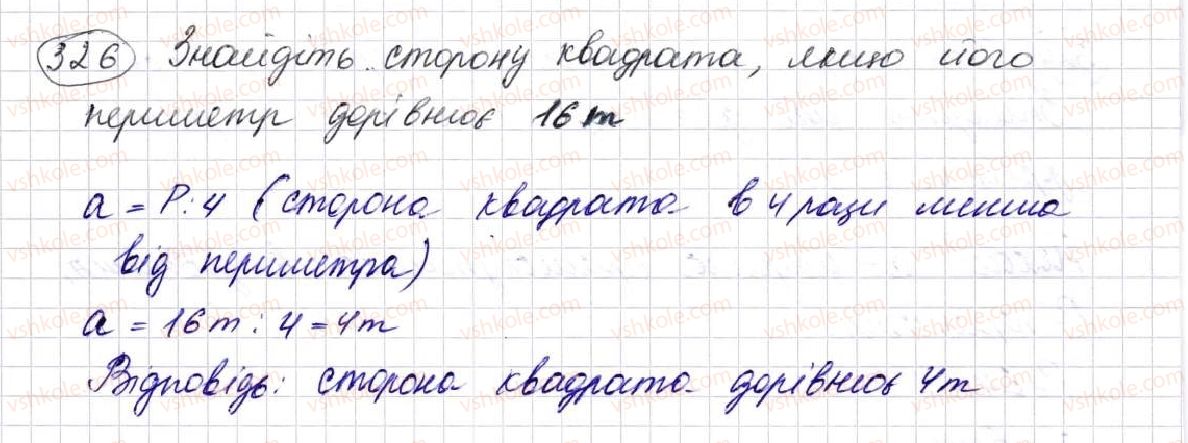 326 Знайдіть сторону квадрата, якщо його
периметр дорівнює 16 m
a = P : 4 (сторона квадрата в 4 рази менша
від периметра)
a = 16 m : 4 = 4 m
Відповідь: сторона квадрата дорівнює 4 m